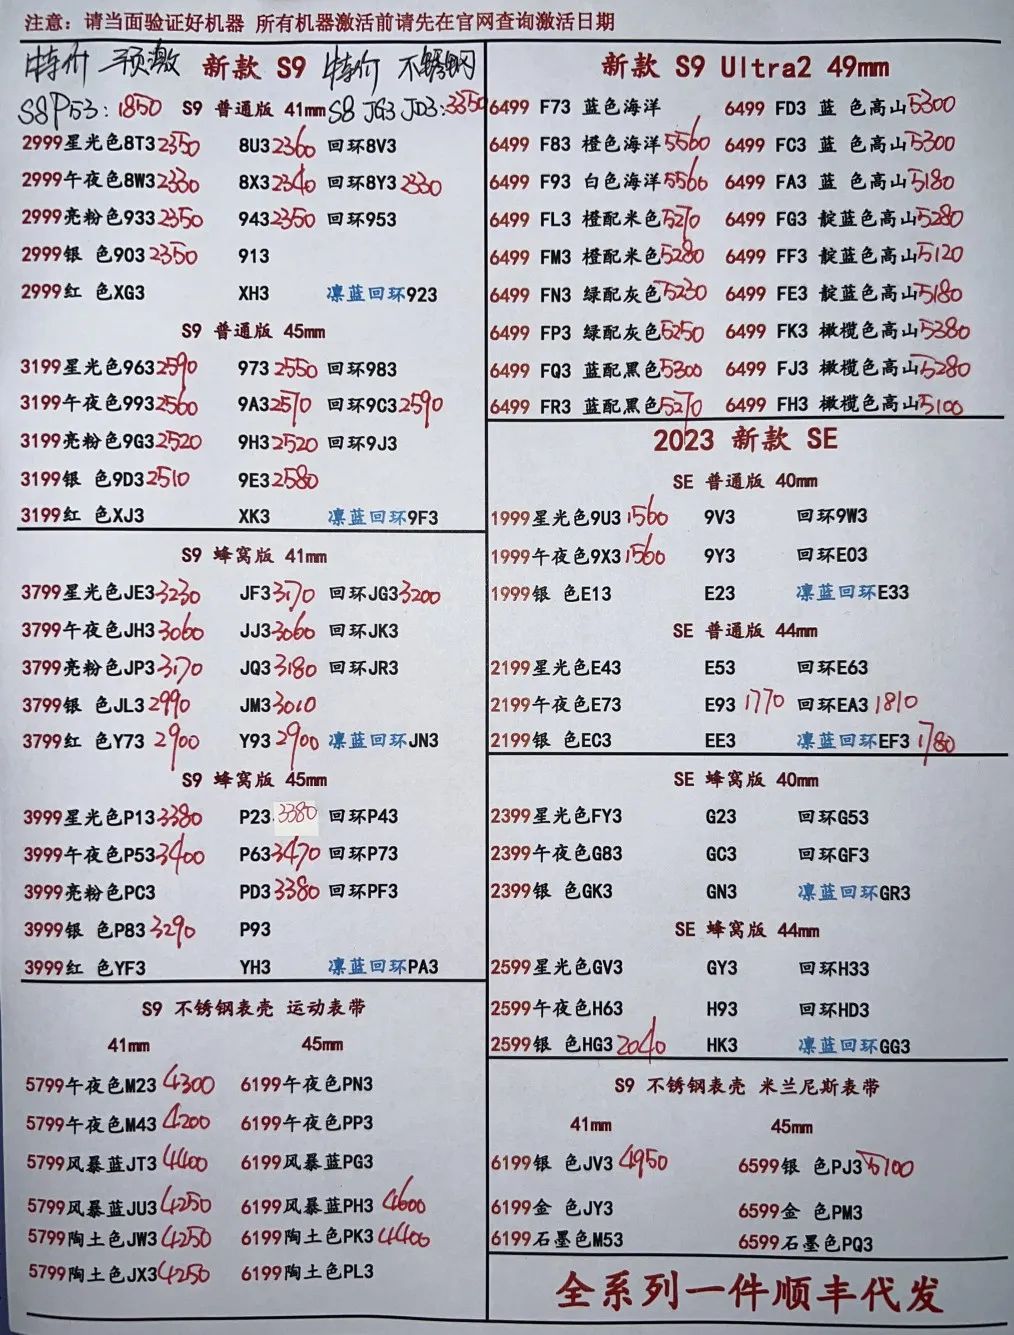 注意：请当面验证好机器 所有机器激活前请先在官网查询激活日期
特价 预激 新款 S9 特价 不锈钢
S8P53：1850 S9 普通版 41mm S8 JG3 JD3：3350
2999星光色8T3 2350 8U3 2360 回环8V3
2999午夜色8W3 2330 8X3 2340 回环8Y3 2330
2999亮粉色933 2350 943 2350 回环953
2999银 色903 2350 913
2999红 色XG3 XH3 凛蓝回环923
S9 普通版 45mm
3199星光色963 2590 973 2550 回环983
3199午夜色993 2560 9A3 2570 回环9C3 2590
3199亮粉色9G3 2520 9H3 2520 回环9J3
3199银 色9D3 2510 9E3 2580
3199红 色XJ3 XK3 凛蓝回环9F3
S9 蜂窝版 41mm
3799星光色JE3 3230 JF3 3170 回环JG3 3200
3799午夜色JH3 3060 JJ3 3060 回环JK3
3799亮粉色JP3 3170 JQ3 3180 回环JR3
3799银 色JL3 2990 JM3 3010
3799红 色Y73 2900 Y93 2900 凛蓝回环JN3
S9 蜂窝版 45mm
3999星光色P13 3380 P23 3380 回环P43
3999午夜色P53 3400 P63 3470 回环P73
3999亮粉色PC3 PD3 3380 回环PF3
3999银 色P83 3290 P93
3999红 色YF3 YH3 凛蓝回环PA3
S9 不锈钢表壳 运动表带
41mm 45mm
5799午夜色M23 4300 6199午夜色PN3
5799午夜色M43 4200 6199午夜色PP3
5799风暴蓝JT3 4400 6199风暴蓝PG3
5799风暴蓝JU3 4250 6199风暴蓝PH3 4600
5799陶土色JW3 4250 6199陶土色PK3 4400
5799陶土色JX3 4250 6199陶土色PL3
新款 S9 Ultra2 49mm
6499 F73 蓝色海洋 6499 FD3 蓝 色高山 5300
6499 F83 橙色海洋 5560 6499 FC3 蓝 色高山 5300
6499 F93 白色海洋 5560 6499 FA3 蓝 色高山 5180
6499 FL3 橙配米色 5270 6499 FG3 靛蓝色高山 5280
6499 FM3 橙配米色 5280 6499 FF3 靛蓝色高山 5120
6499 FN3 绿配灰色 5230 6499 FE3 靛蓝色高山 5180
6499 FP3 绿配灰色 5250 6499 FK3 橄榄色高山 5380
6499 FQ3 蓝配黑色 5300 6499 FJ3 橄榄色高山 5280
6499 FR3 蓝配黑色 5270 6499 FH3 橄榄色高山 5100
2023 新款 SE
SE 普通版 40mm
1999星光色9U3 1560 9V3 回环9W3
1999午夜色9X3 1560 9Y3 回环E03
1999银 色E13 E23 凛蓝回环E33
SE 普通版 44mm
2199星光色E43 E53 回环E63
2199午夜色E73 E93 1770 回环EA3 1810
2199银 色EC3 EE3 凛蓝回环EF3 1780
SE 蜂窝版 40mm
2399星光色FY3 G23 回环G53
2399午夜色G83 GC3 回环GF3
2399银 色GK3 GN3 凛蓝回环GR3
SE 蜂窝版 44mm
2599星光色GV3 GY3 回环H33
2599午夜色H63 H93 回环HD3
2599银 色HG3 2040 HK3 凛蓝回环GG3
S9 不锈钢表壳 米兰尼斯表带
41mm 45mm
6199银 色JV3 4950 6599银 色PJ3 5100
6199金 色JY3 6599金 色PM3
6199石墨色M53 6599石墨色PQ3
全系列一件顺丰代发